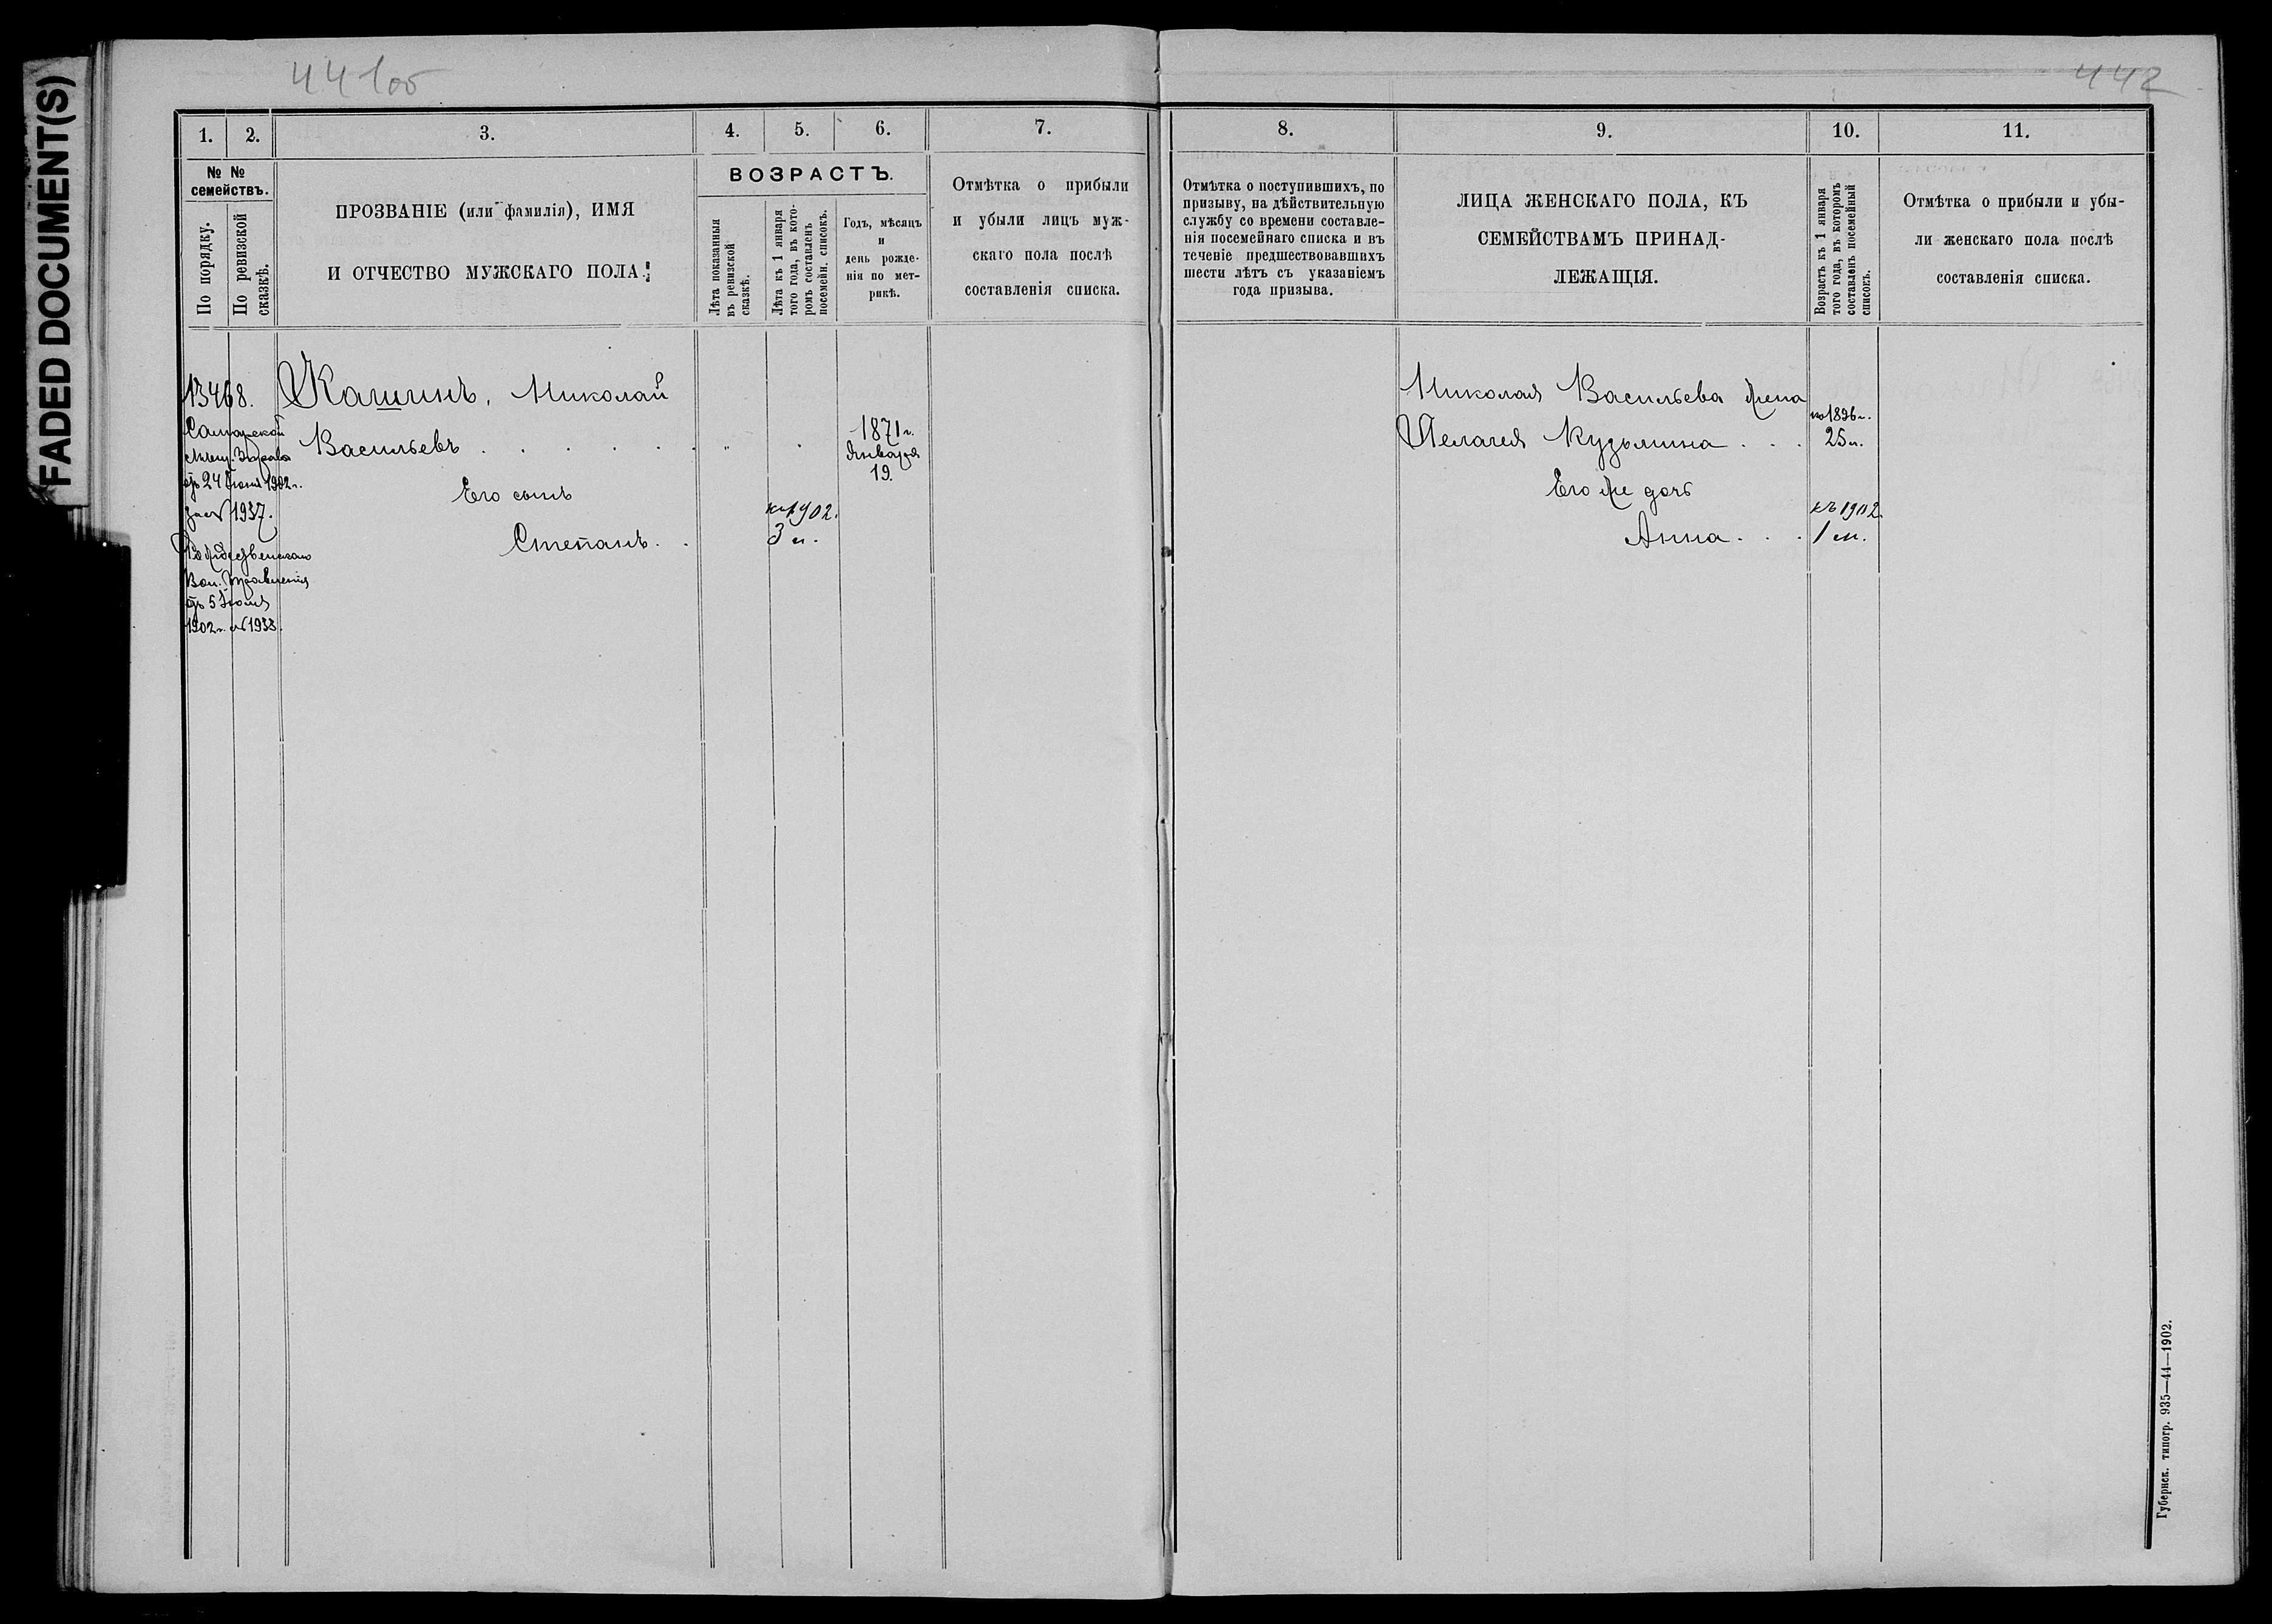 FADED DOCUMENT(S)
441об
442
1. 2. 3. 4. 5. 6. 7. 8. 9. 10. 11.
№ №
семействъ.
По порядку.
По ревизской
сказкѣ.
ПРОЗВАНІЕ (или фамилія), ИМЯ
И ОТЧЕСТВО МУЖСКАГО ПОЛА.
ВОЗРАСТЪ.
Лѣта показанныя
въ ревизской
сказкѣ.
Лѣта къ 1 января
того года, въ кото-
ромъ составленъ
посемейн. списокъ.
Годъ, мѣсяцъ
и
день рожде-
нія по мет-
рикѣ.
Отмѣтка о прибыли
и убыли лицъ муж-
скаго пола послѣ
составленія списка.
Отмѣтка о поступившихъ, по
призыву, на дѣйствительную
службу со времени составле-
нія посемейнаго списка и въ
теченіе предшествовавшихъ
шести лѣтъ съ указаніемъ
года призыва.
ЛИЦА ЖЕНСКАГО ПОЛА, КЪ
СЕМЕЙСТВАМЪ ПРИНАД-
ЛЕЖАЩІЯ.
Возрастъ къ 1 января
того года, въ которомъ
составленъ посемейный
списокъ.
Отмѣтка о прибыли и убы-
ли женскаго пола послѣ
составленія списка.
13468.
Самарской
отъ 24 1902 г.
за № 1937.
Рождественскаго
Вол. Правленія
отъ 5 Іюня
1902 г. № 1933.
Кашинъ, Николай
Васильевъ . . . . . .
1871 г.
Января
19.
Его сынъ
Степанъ. .
къ 1902.
3 л.
Николая Васильева жена
Пелагея Кузьмина . . .
1896 г.
25 л.
Его же дочь
Анна . . .
къ 1902.
1 м.
Губернск. типогр. 935—44—1902.